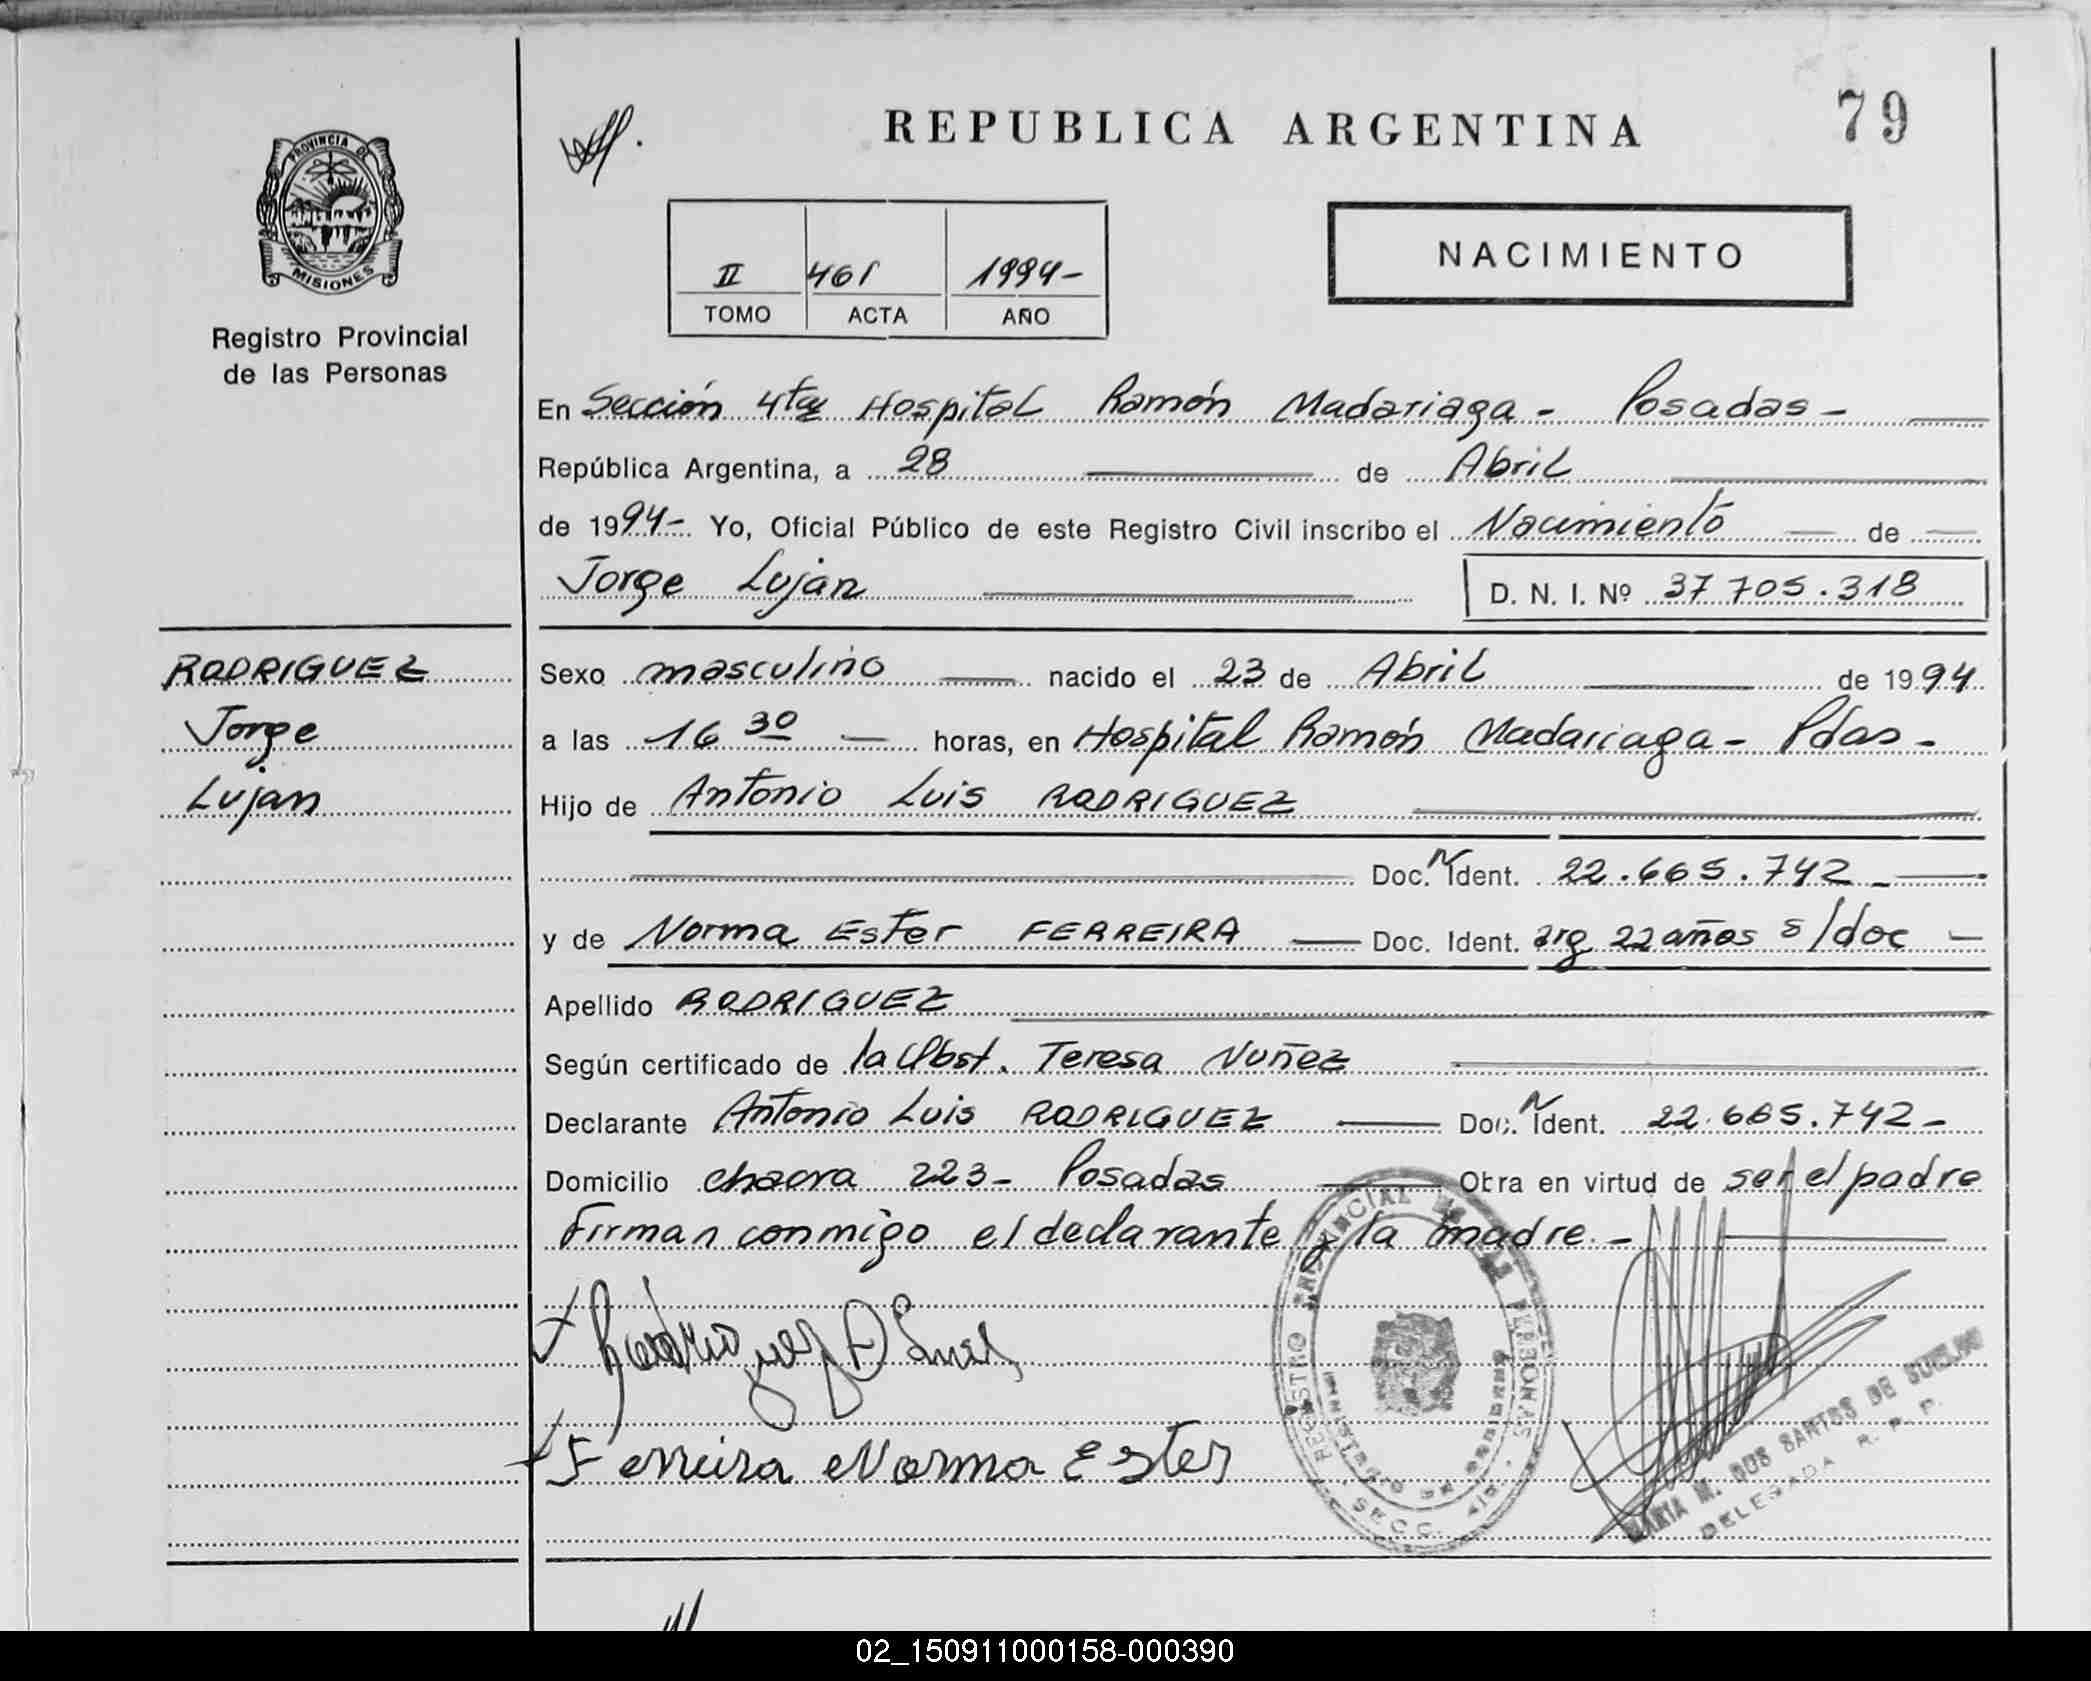 REPUBLICA ARGENTINA
79
PROVINCIA DE
MISIONES
Registro Provincial
de las Personas
II 461 1994-
TOMO ACTA AÑO
NACIMIENTO
En Sección 4ta Hospital Ramón Madariaga - Posadas -
República Argentina, a 28 de Abril
de 1994-. Yo, Oficial Público de este Registro Civil inscribo el Nacimiento de
Jorge Lujan D. N. I. Nº 37 705.318
RODRIGUEZ
Jorge
Lujan
Sexo masculino nacido el 23 de Abril de 1994
a las 16 30 horas, en Hospital Ramón Madariaga - Pdas -
Hijo de Antonio Luis RODRIGUEZ
Doc. N Ident. 22.665.742 -
y de Norma Ester FERREIRA Doc. Ident. arg 22 años s/doc -
Apellido RODRIGUEZ
Según certificado de la Obst. Teresa Nuñez
Declarante Antonio Luis RODRIGUEZ Doc. N Ident. 22.665.742 -
Domicilio chacra 223 - Posadas Obra en virtud de ser el padre
Firman conmigo el declarante y la madre. -
Rodriguez A Luis
Ferreira Norma Ester
REGISTRO PROVINCIAL DE LAS PERSONAS
SECC. 4ta
MARIA M. DOS SANTOS DE
DELEGADA R. P. P.
02_150911000158-000390